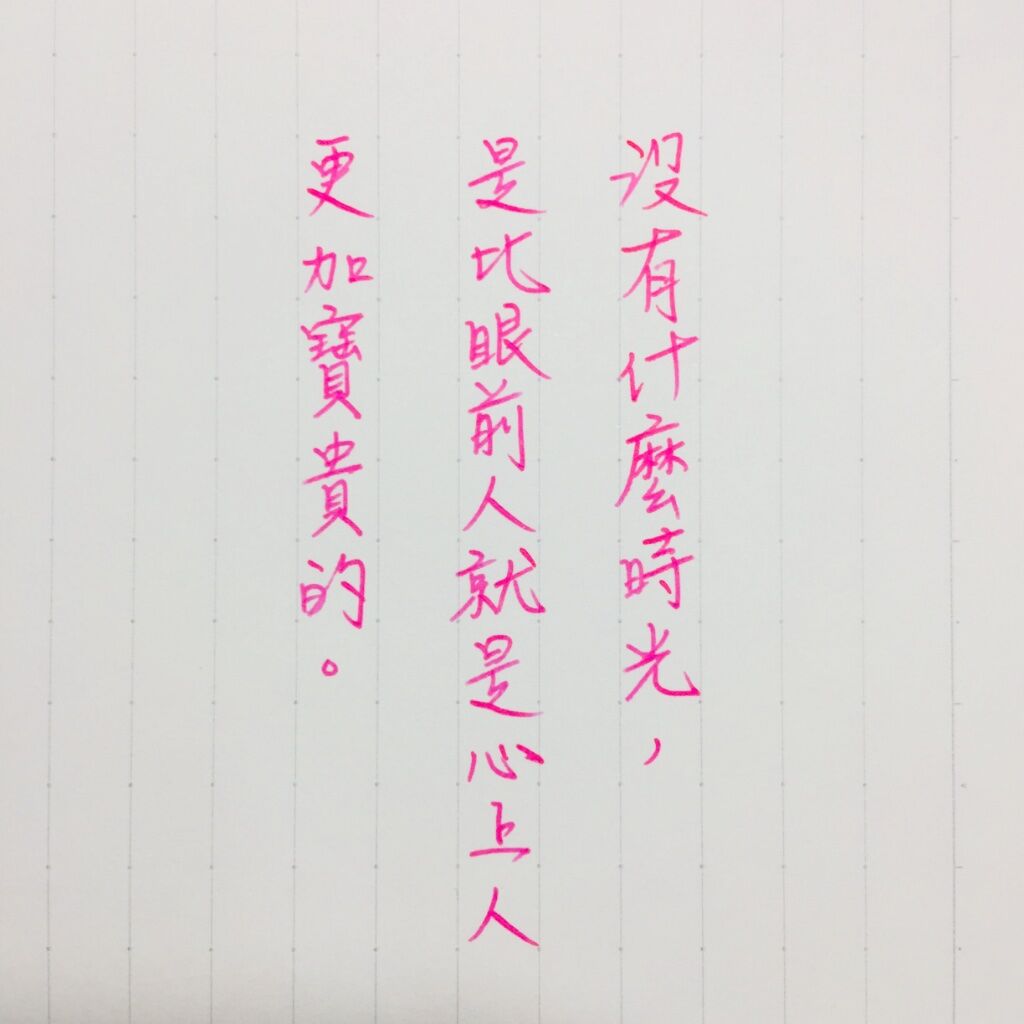 沒有什麼時光，
是比眼前人就是心上人
更加寶貴的。